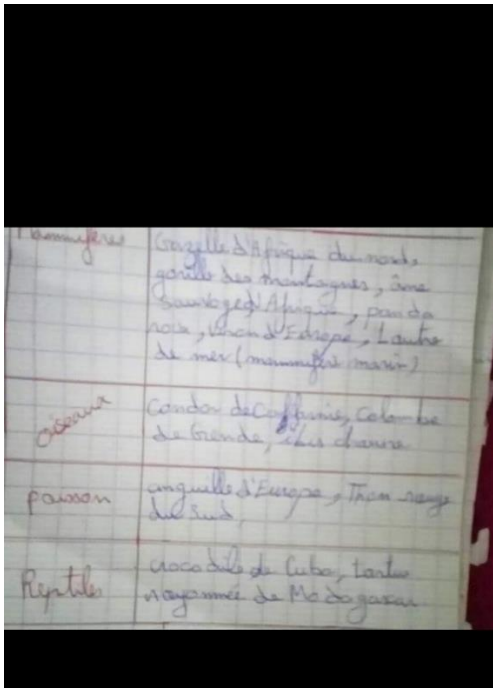 Mammifères
Gazelle d'Afrique du nord,
gorille des montagnes, âne
sauvage d'Afrique, panda
roux, vison d'Europe, Loutre
de mer (mammifère marin)
oiseaux
Condor de Californie, Colombe
de Grenade, ibis chauve
poisson
anguille d'Europe, Thon rouge
du Sud,
Reptiles
crocodile de Cuba, tortue
rayonnée de Madagascar